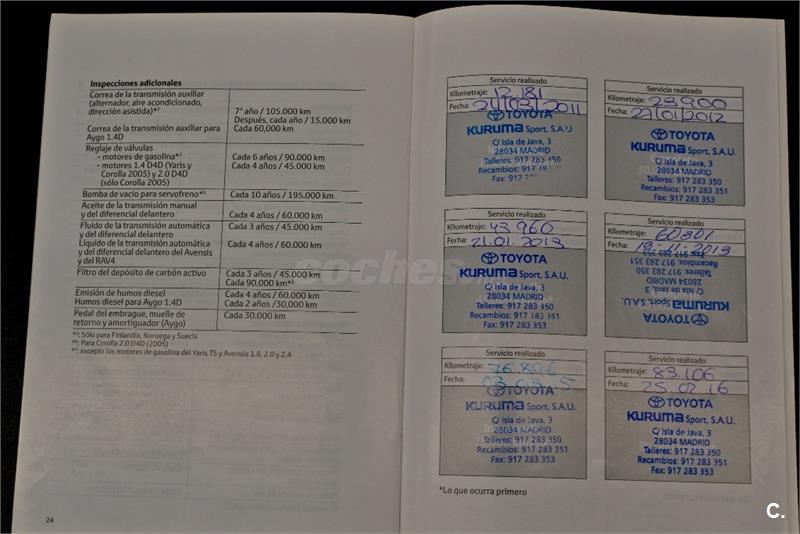 Inspecciones adicionales
Correa de la transmisión auxiliar
(alternador, aire acondicionado,
dirección asistida)*⁷
7° año / 105.000 km
Después, cada año / 15.000 km
Correa de la transmisión auxiliar para
Aygo 1.4D
Cada 60,000 km
Reglaje de válvulas
- motores de gasolina*⁷
Cada 6 años / 90.000 km
- motores 1.4 D4D (Yaris y
Corolla 2005) y 2.0 D4D
(sólo Corolla 2005)
Cada 4 años / 45.000 km
Bomba de vacío para servofreno*⁶
Cada 10 años / 195.000 km
Aceite de la transmisión manual
y del diferencial delantero
Cada 4 años / 60.000 km
Fluido de la transmisión automática
y del diferencial delantero
Cada 3 años / 45.000 km
Líquido de la transmisión automática
y del diferencial delantero del Avensis
y del RAV4
Cada 4 años / 60.000 km
Filtro del depósito de carbón activo
Cada 3 años / 45.000 km
Cada 90.000 km*⁵
Emisión de humos diesel
Cada 4 años / 60.000 km
Humos diesel para Aygo 1.4D
Cada 2 años /30,000 km
Pedal del embrague, muelle de
retorno y amortiguador (Aygo)
Cada 30.000 km
*⁵: Sólo para Finlandia, Noruega y Suecia
*⁶: Para Corolla 2.0 D4D (2005)
*⁷: excepto los motores de gasolina del Yaris TS y Avensis 1.8, 2.0 y 2.4
24
Servicio realizado
Kilometraje: 12.181
Fecha: 24/03/2011
TOYOTA
KURUMA Sport, S.A.U.
C/ Isla de Java, 3
28034 MADRID
Talleres: 917 283 350
Recambios: 917 283 351
Fax: 917 2
Servicio realizado
Kilometraje: 23.900
Fecha: 27/01/2012
TOYOTA
KURUMA Sport, S.A.U.
C/ Isla de Java, 3
28034 MADRID
Talleres: 917 283 350
Recambios: 917 283 351
Fax: 917 283 353
Servicio realizado
Kilometraje: 43.960
Fecha: 21.01.2013
TOYOTA
KURUMA Sport, S.A.U.
C/ Isla de Java, 3
28034 MADRID
Talleres: 917 283 350
Recambios: 917 283 351
Fax: 917 283 353
Servicio realizado
Kilometraje: 60301
Fecha: 18-11-2013
TOYOTA
KURUMA Sport, S.A.U.
C/ Isla de Java, 3
28034 MADRID
Talleres: 917 283 350
Recambios: 917 283 351
Servicio realizado
Kilometraje: 76.806
Fecha: 03.03.15
TOYOTA
KURUMA Sport, S.A.U.
C/ Isla de Java, 3
28034 MADRID
Talleres: 917 283 350
Recambios: 917 283 351
Fax: 917 283 353
Servicio realizado
Kilometraje: 83.106
Fecha: 25 02 16
TOYOTA
KURUMA Sport, S.A.U.
C/ Isla de Java, 3
28034 MADRID
Talleres: 917 283 350
Recambios: 917 283 351
Fax: 917 283 353
*Lo que ocurra primero
coches
C.